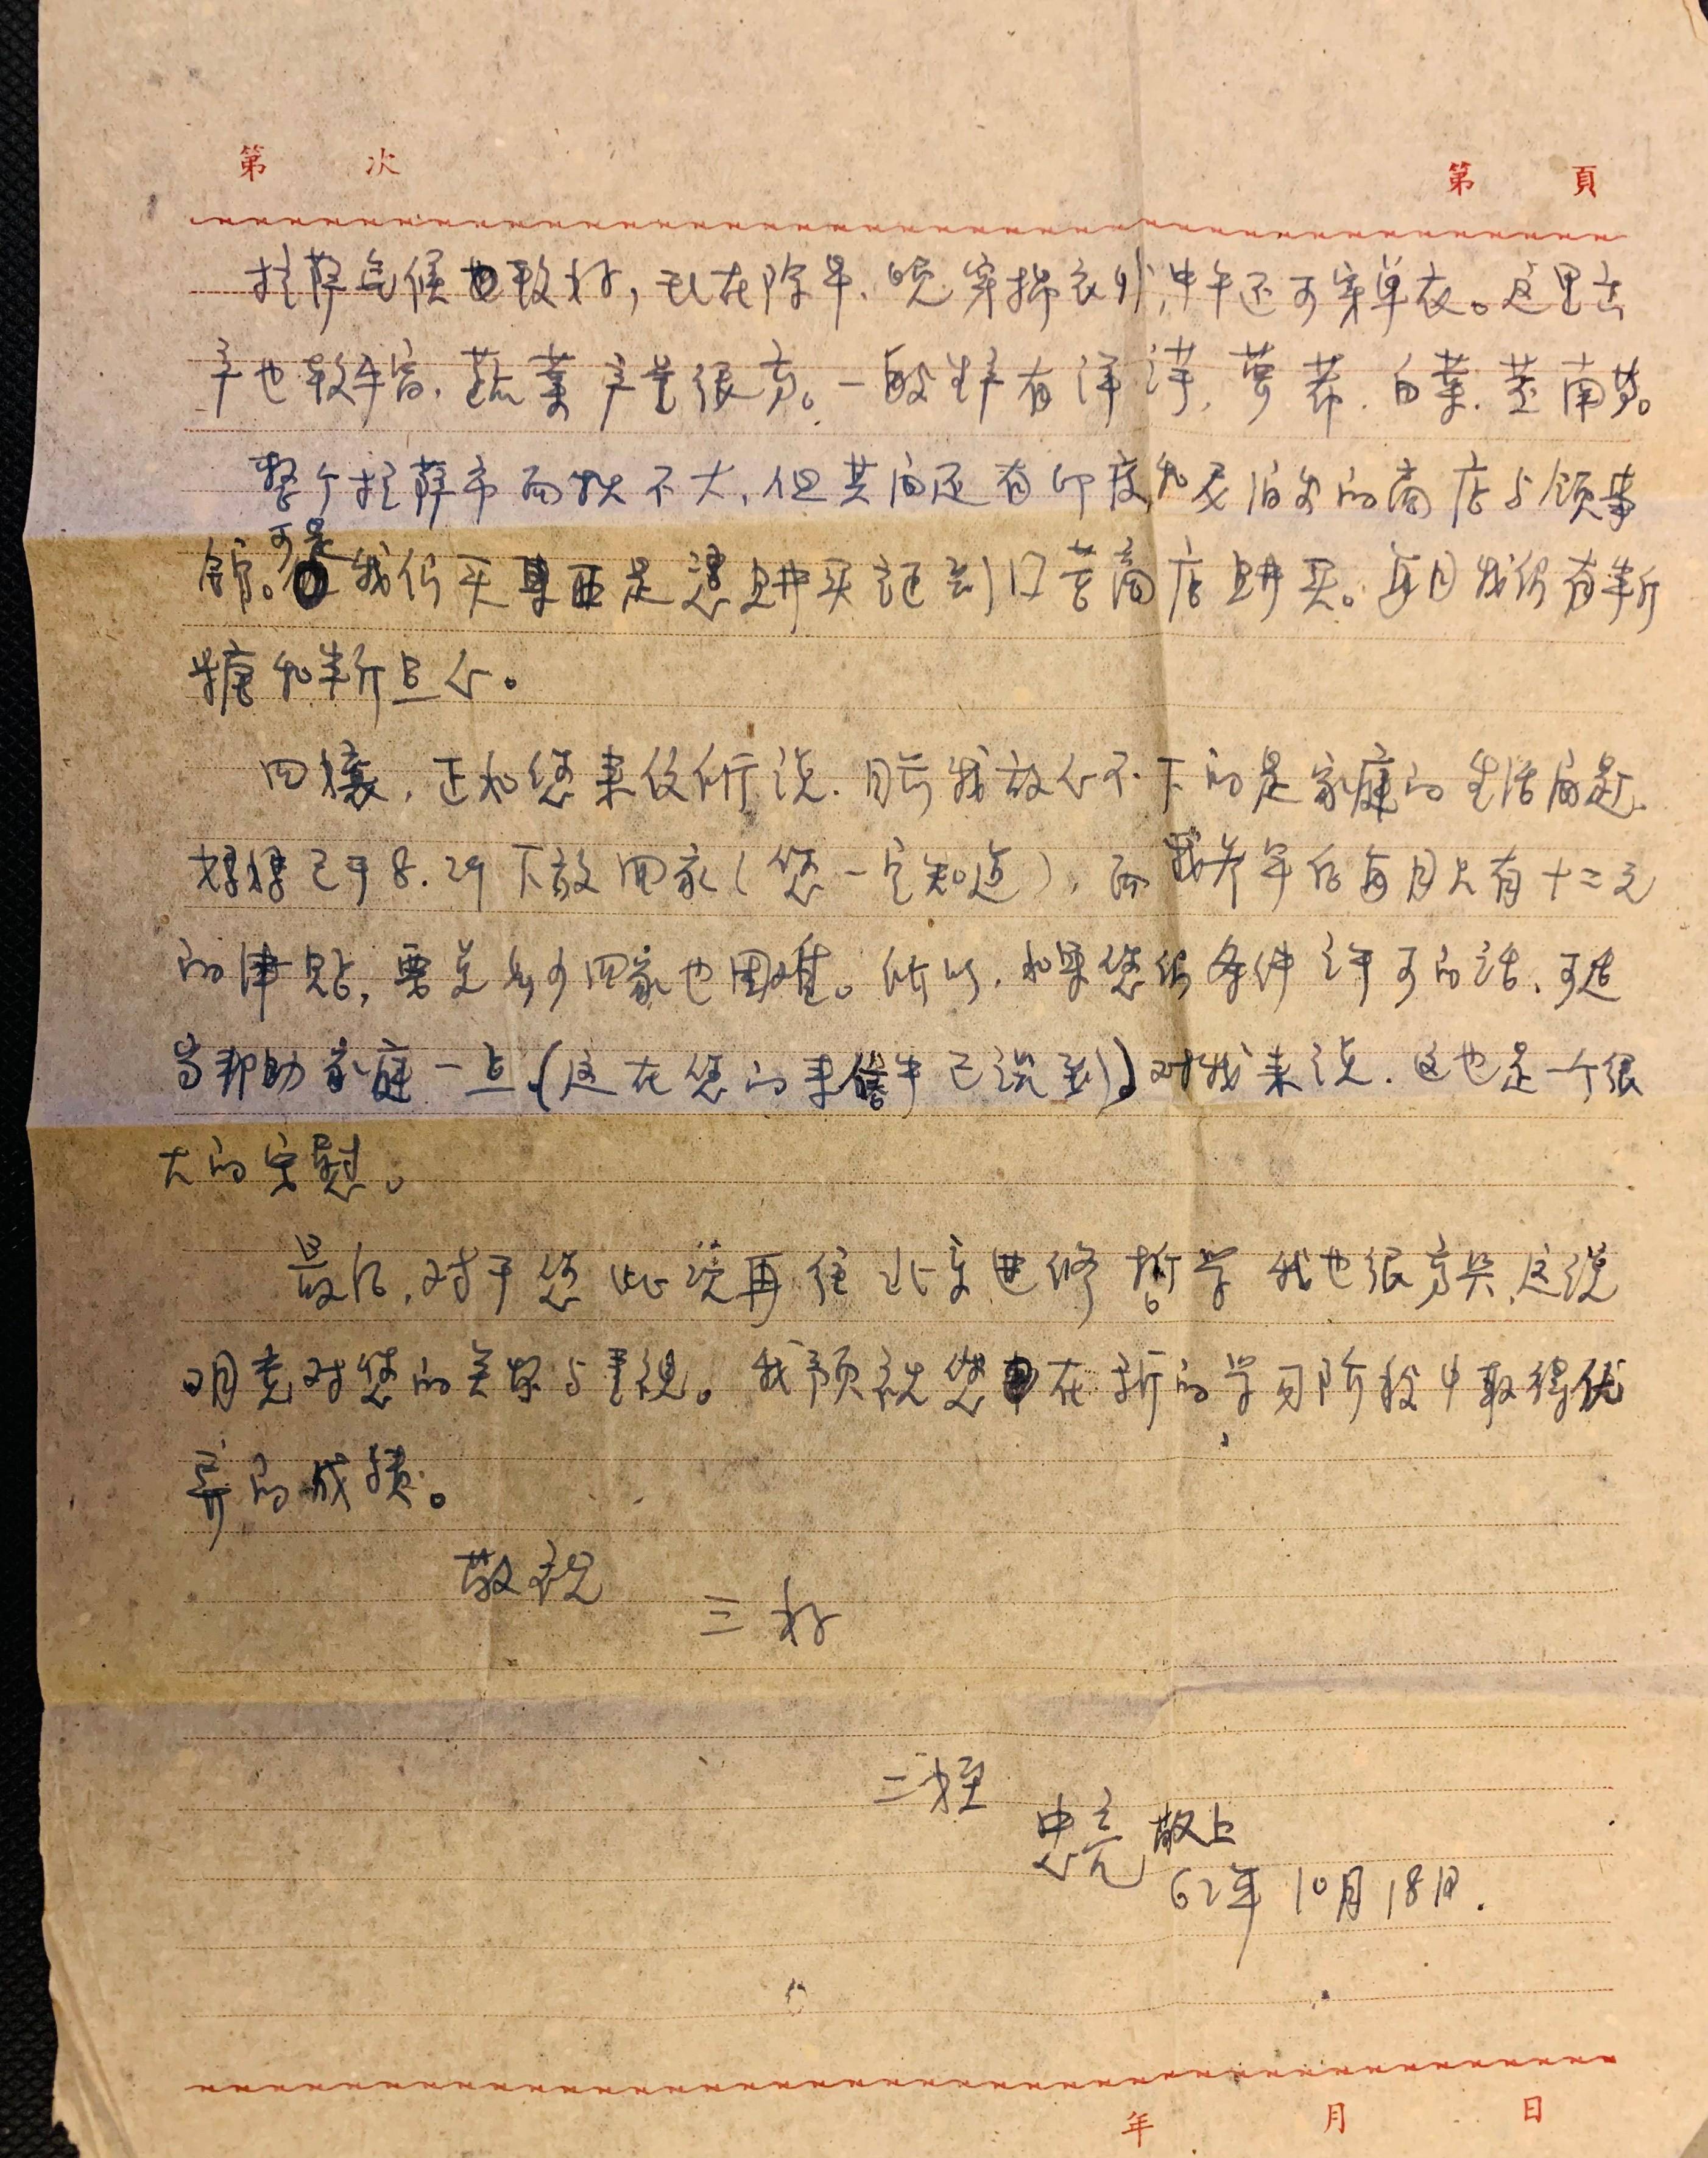 第 次 第 頁
拉萨气候也较好，现在除早、晚穿棉衣外，中午还可穿单衣。这里出
产也较丰富，蔬菜产量很高。一般生产有洋芋，萝卜，白菜，
整个拉萨市面积不大，但其间还有印度和尼泊尔的商店与领事
馆。可是我们买东西是凭购买证到门市商店购买。每月我们有半斤
糖和半斤点心。
四孃，正如您来信所说，目前我放心不下的是家庭的生活问题，
妈妈已于8.29下放回家（您一定知道），而我参军后每月只有十二元
的津贴，要兑多少回家也困难。所以，如果您们条件许可的话，可适
当帮助家庭一点（这在您的来信中已说到）。对我来说，这也是一个很
大的安慰。
最后，对于您此次再往北京进修哲学我也很高兴，这说
明党对您的关怀与重视。我预祝您在新的学习阶段中取得优
异的成绩。
敬祝
三好
二侄
忠亮 敬上
62年10月18日.
年 月 日